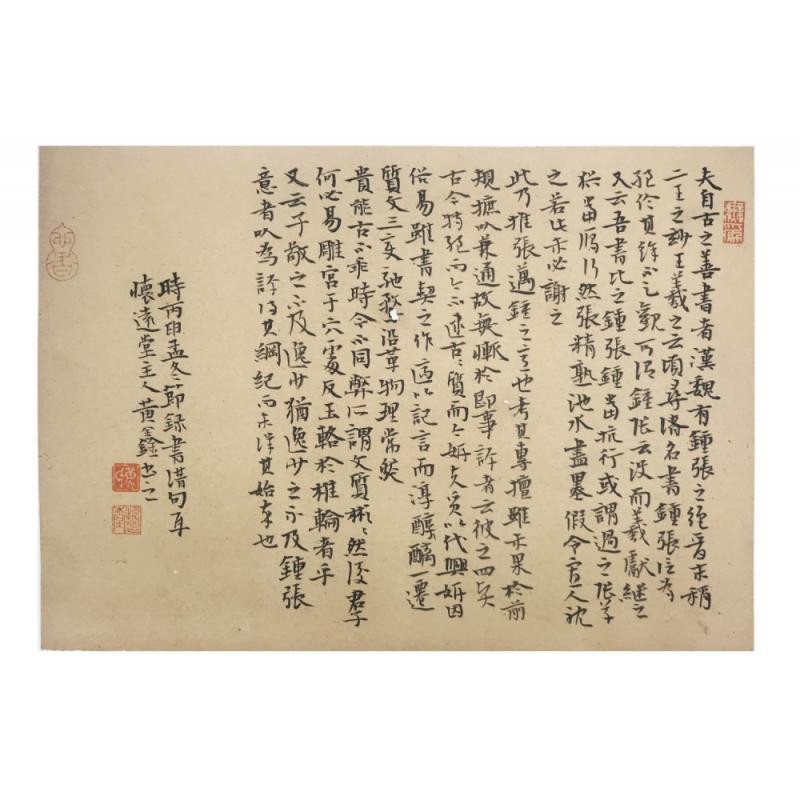 夫自古之善書者漢魏有鍾張之絕晉末稱
二王之妙王羲之云頃尋諸名書鍾張信為
絕倫其餘不足觀可謂鍾張云沒而羲獻繼之
又云吾書比之鍾張鍾當抗行或謂過之張草
猶當鴈行然張精熟池水盡墨假令寡人耽
之若此未必謝之
此乃推張邁鍾之意也考其專擅雖未果於前
規摭以兼通故無慚於即事評者云彼之四賢
古今特絕而今不逮古〻質而今妍夫質以代興妍因
俗易雖書契之作適以記言而淳醇醨一遷
質文三變馳騖沿革物理常然
貴能古不乖時今不同弊所謂文質彬〻然後君子
何必易雕宮于穴處反玉輅於椎輪者乎
又云子敬之不及逸少猶逸少之不及鍾張
意者以為評得其綱紀而未詳其始卒也
時丙申孟冬節錄書譜句耳
懷遠堂主人黃鑫書之